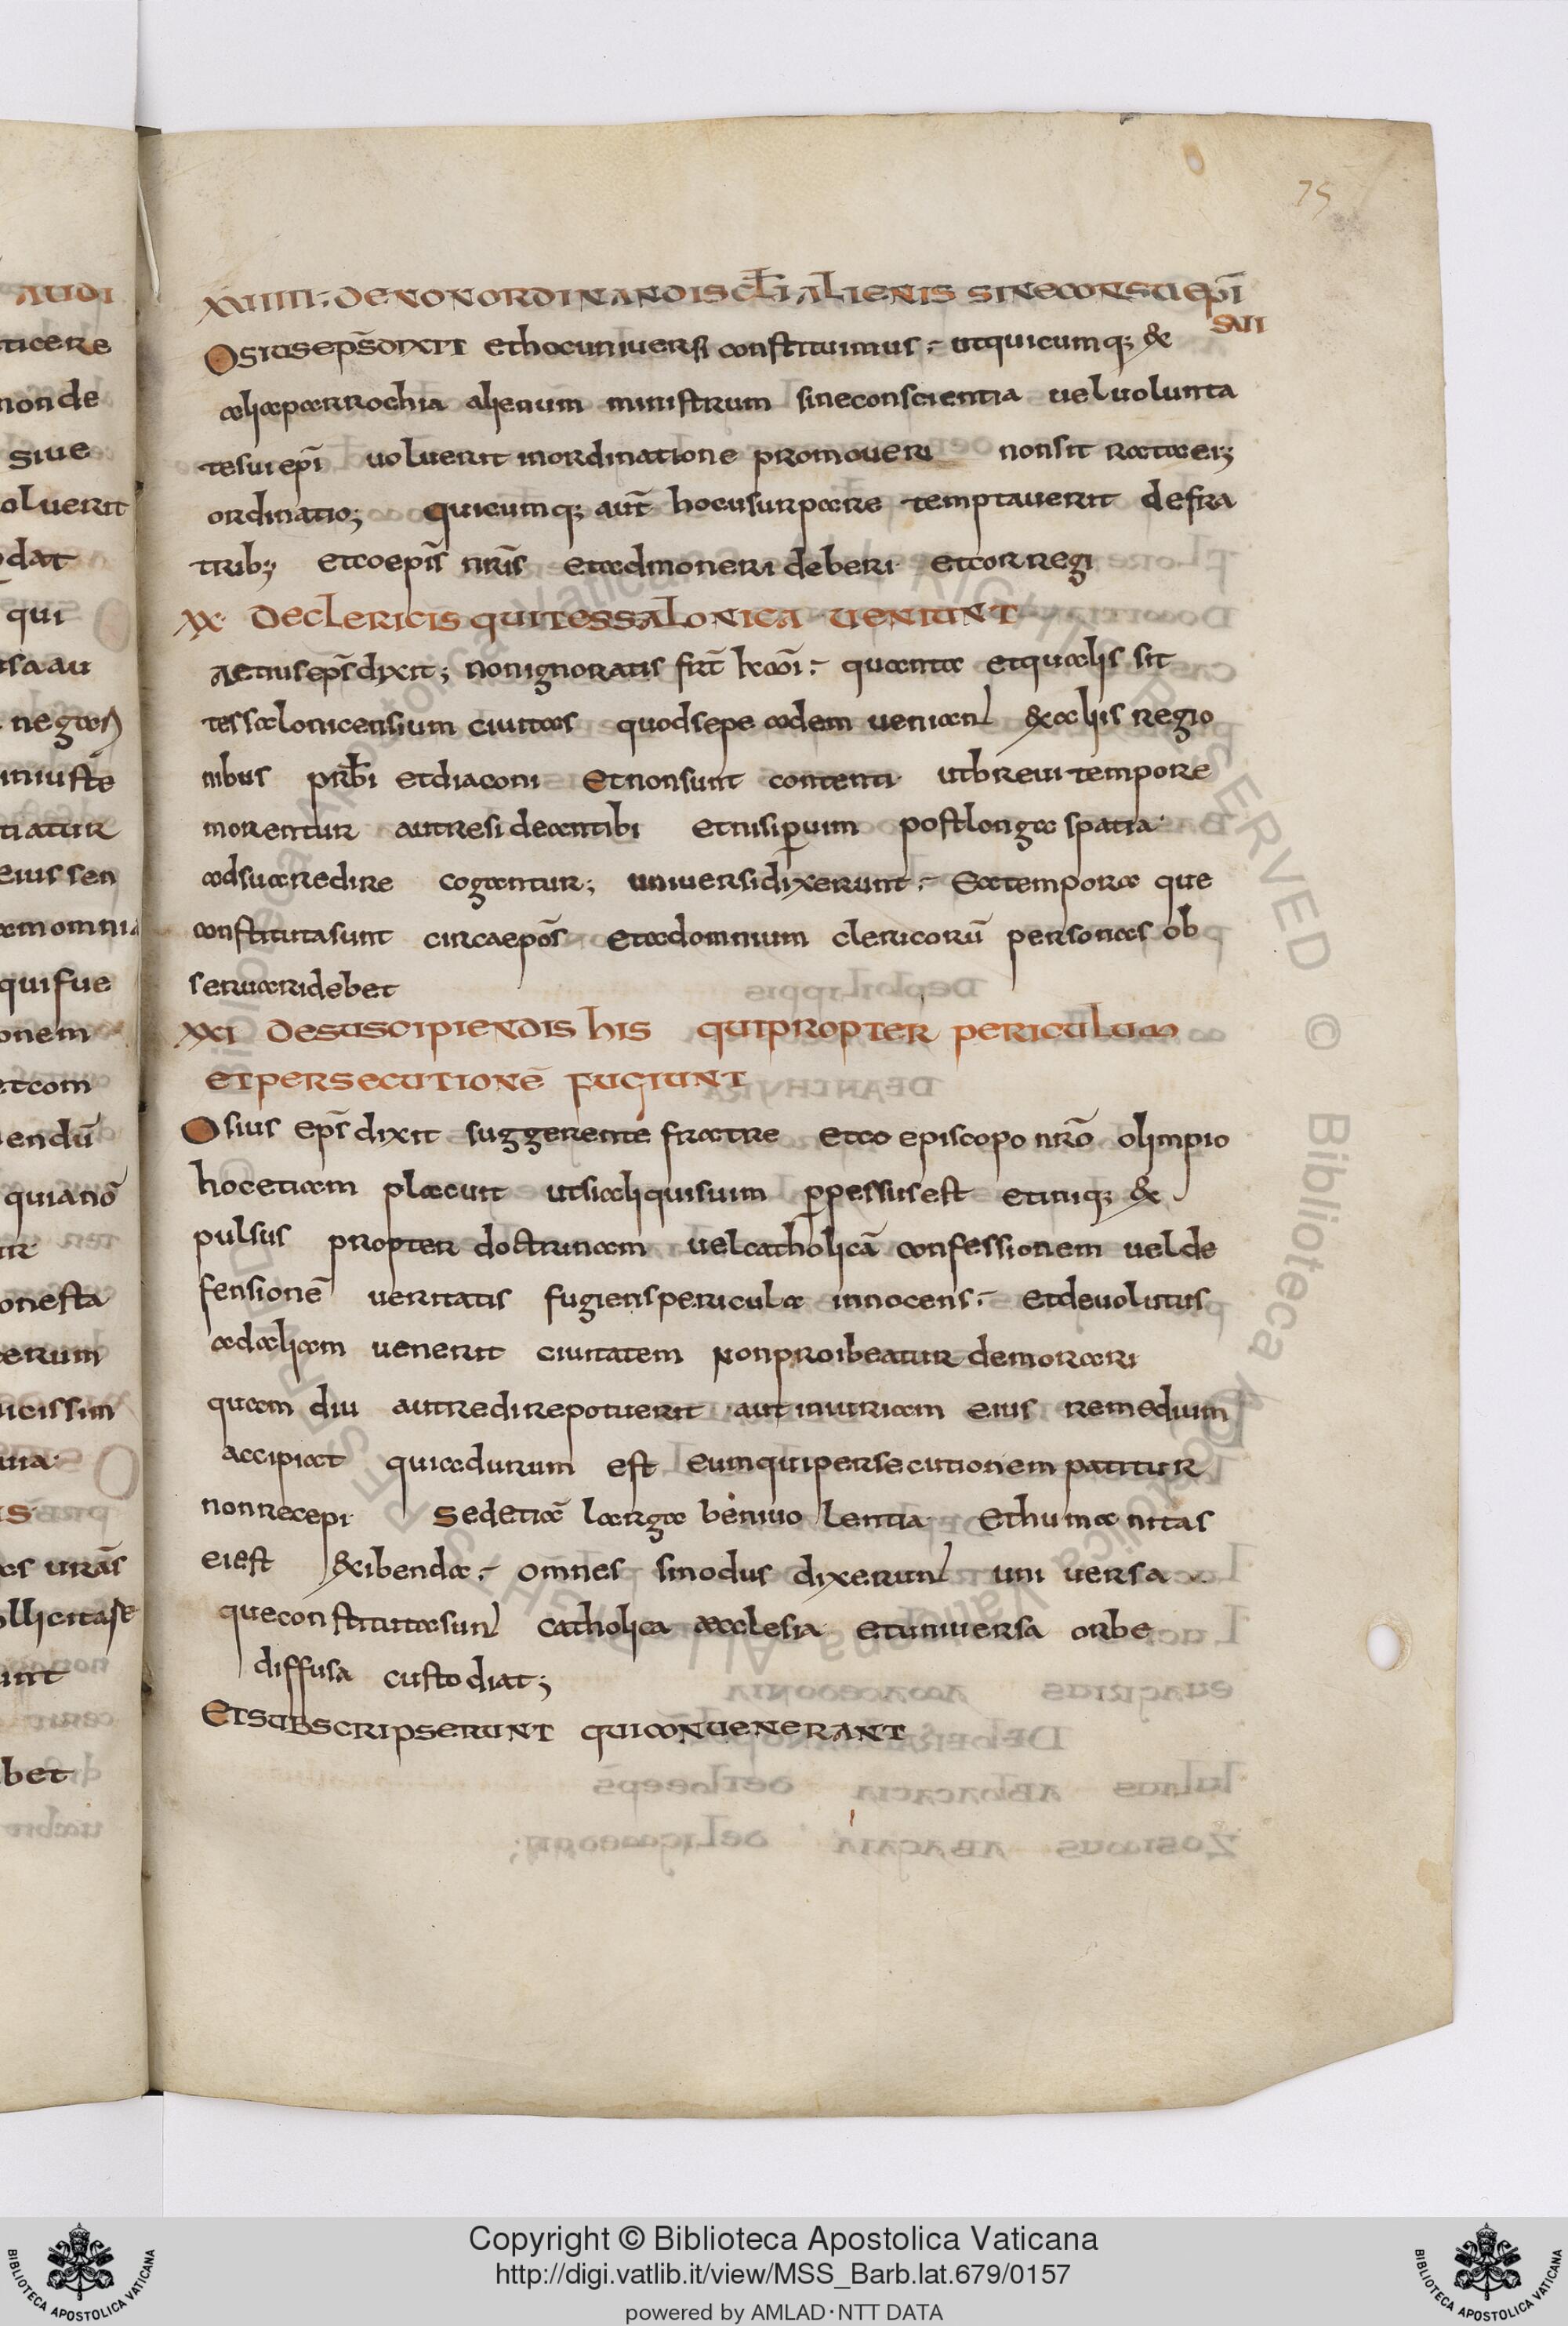 75
XVIIII; DE NON ORDINANDIS CLI ALIENIS SINE CONSCI EPI
SUI
OSIUS EPS DIXIT et hoc universi constituimus; ut quicumq; &
alia parrochia alienum ministrum sine conscientia vel volunta
te sui epi voluerit inordinatione promoveri non sit rata eiz
ordinatio; quicumq; aut hoc usurpare temptaverit defra
trib; et coepis nris et admoneri deberi et corregi
XX DE CLERICIS QUI TESSALONICA VENIUNT
AEtius eps dixit; non ignoratis frt quanta et qualis sit
tessalonicensium civitas quod sepe adem veniant & aliis regio
nibus prbi et diaconi Et non sunt contenti ut brevi tempore
morentur aut resideantibi et nisi pvim post longa spatia
ad sua redire cogantur; universi dixerunt; Ea tempora que
constituta sunt circa epos et ad omnium clericorū personas ob
servari debet
XXI DE SUSCIPIENDIS HIS QUI PROPTER PERICULUM
ET PERSECUTIONE FUGIUNT
Osius eps dixit suggerente fratre et co episcopo nro olimpio
hoc etiam placuit ut si aliqui suim ppessus est et iniq; &
pulsus propter doctrinam vel catholicā confessionem vel de
fensionē veritatis fugiens pericula innocens; et devolutus
ad aliam venerit civitatem non proibeatur demorari
quam diu aut redire potuerit aut iniuriam eius remedium
accipiat quia durum est eum qui persecutionem patitur
non recepi sed etiā larga benivo lentia Et huma nitas
ei est &xibenda; omnes sinodus dixerunt uni versa
que constituta sunt catholica aecclesia et universa orbe
diffusa custodiat;
ET SUBSCRIPSERUNT QUI CONVENERANT
Copyright © Biblioteca Apostolica Vaticana
http://digi.vatlib.it/view/MSS_Barb.lat.679/0157
powered by AMLAD·NTT DATA
BIBLIOTECA APOSTOLICA VATICANA
BIBLIOTECA APOSTOLICA VATICANA